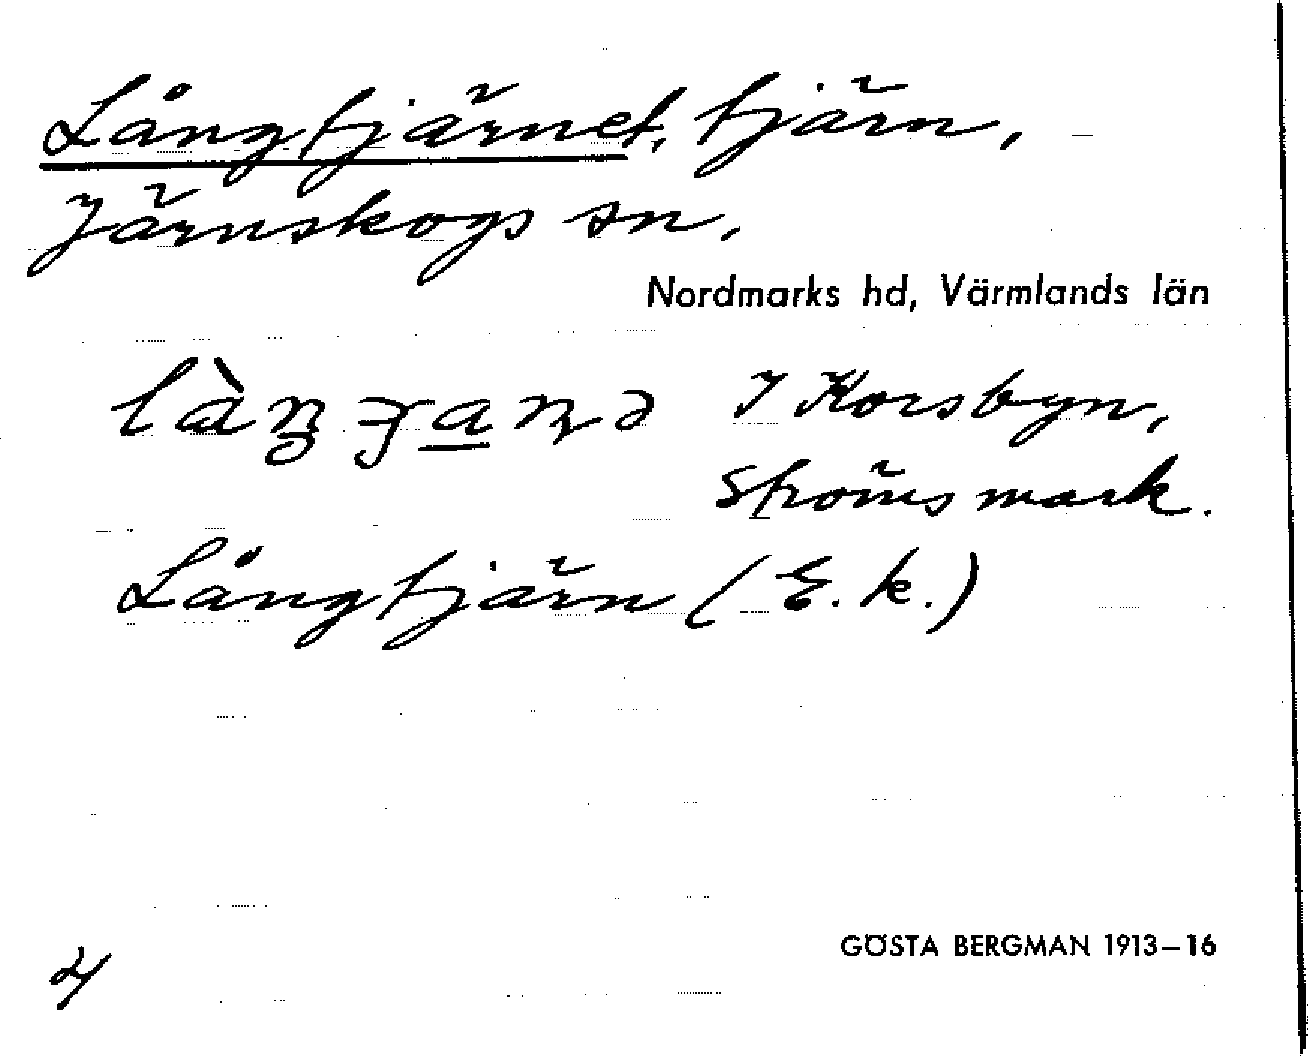 Långtjärnet, tjärn,
Järnskogs sn.
Nordmarks hd, Värmlands län
I Korsbyn,
Strömsmark.
Långtjärn (E.k.)
GÖSTA BERGMAN 1913–16
4